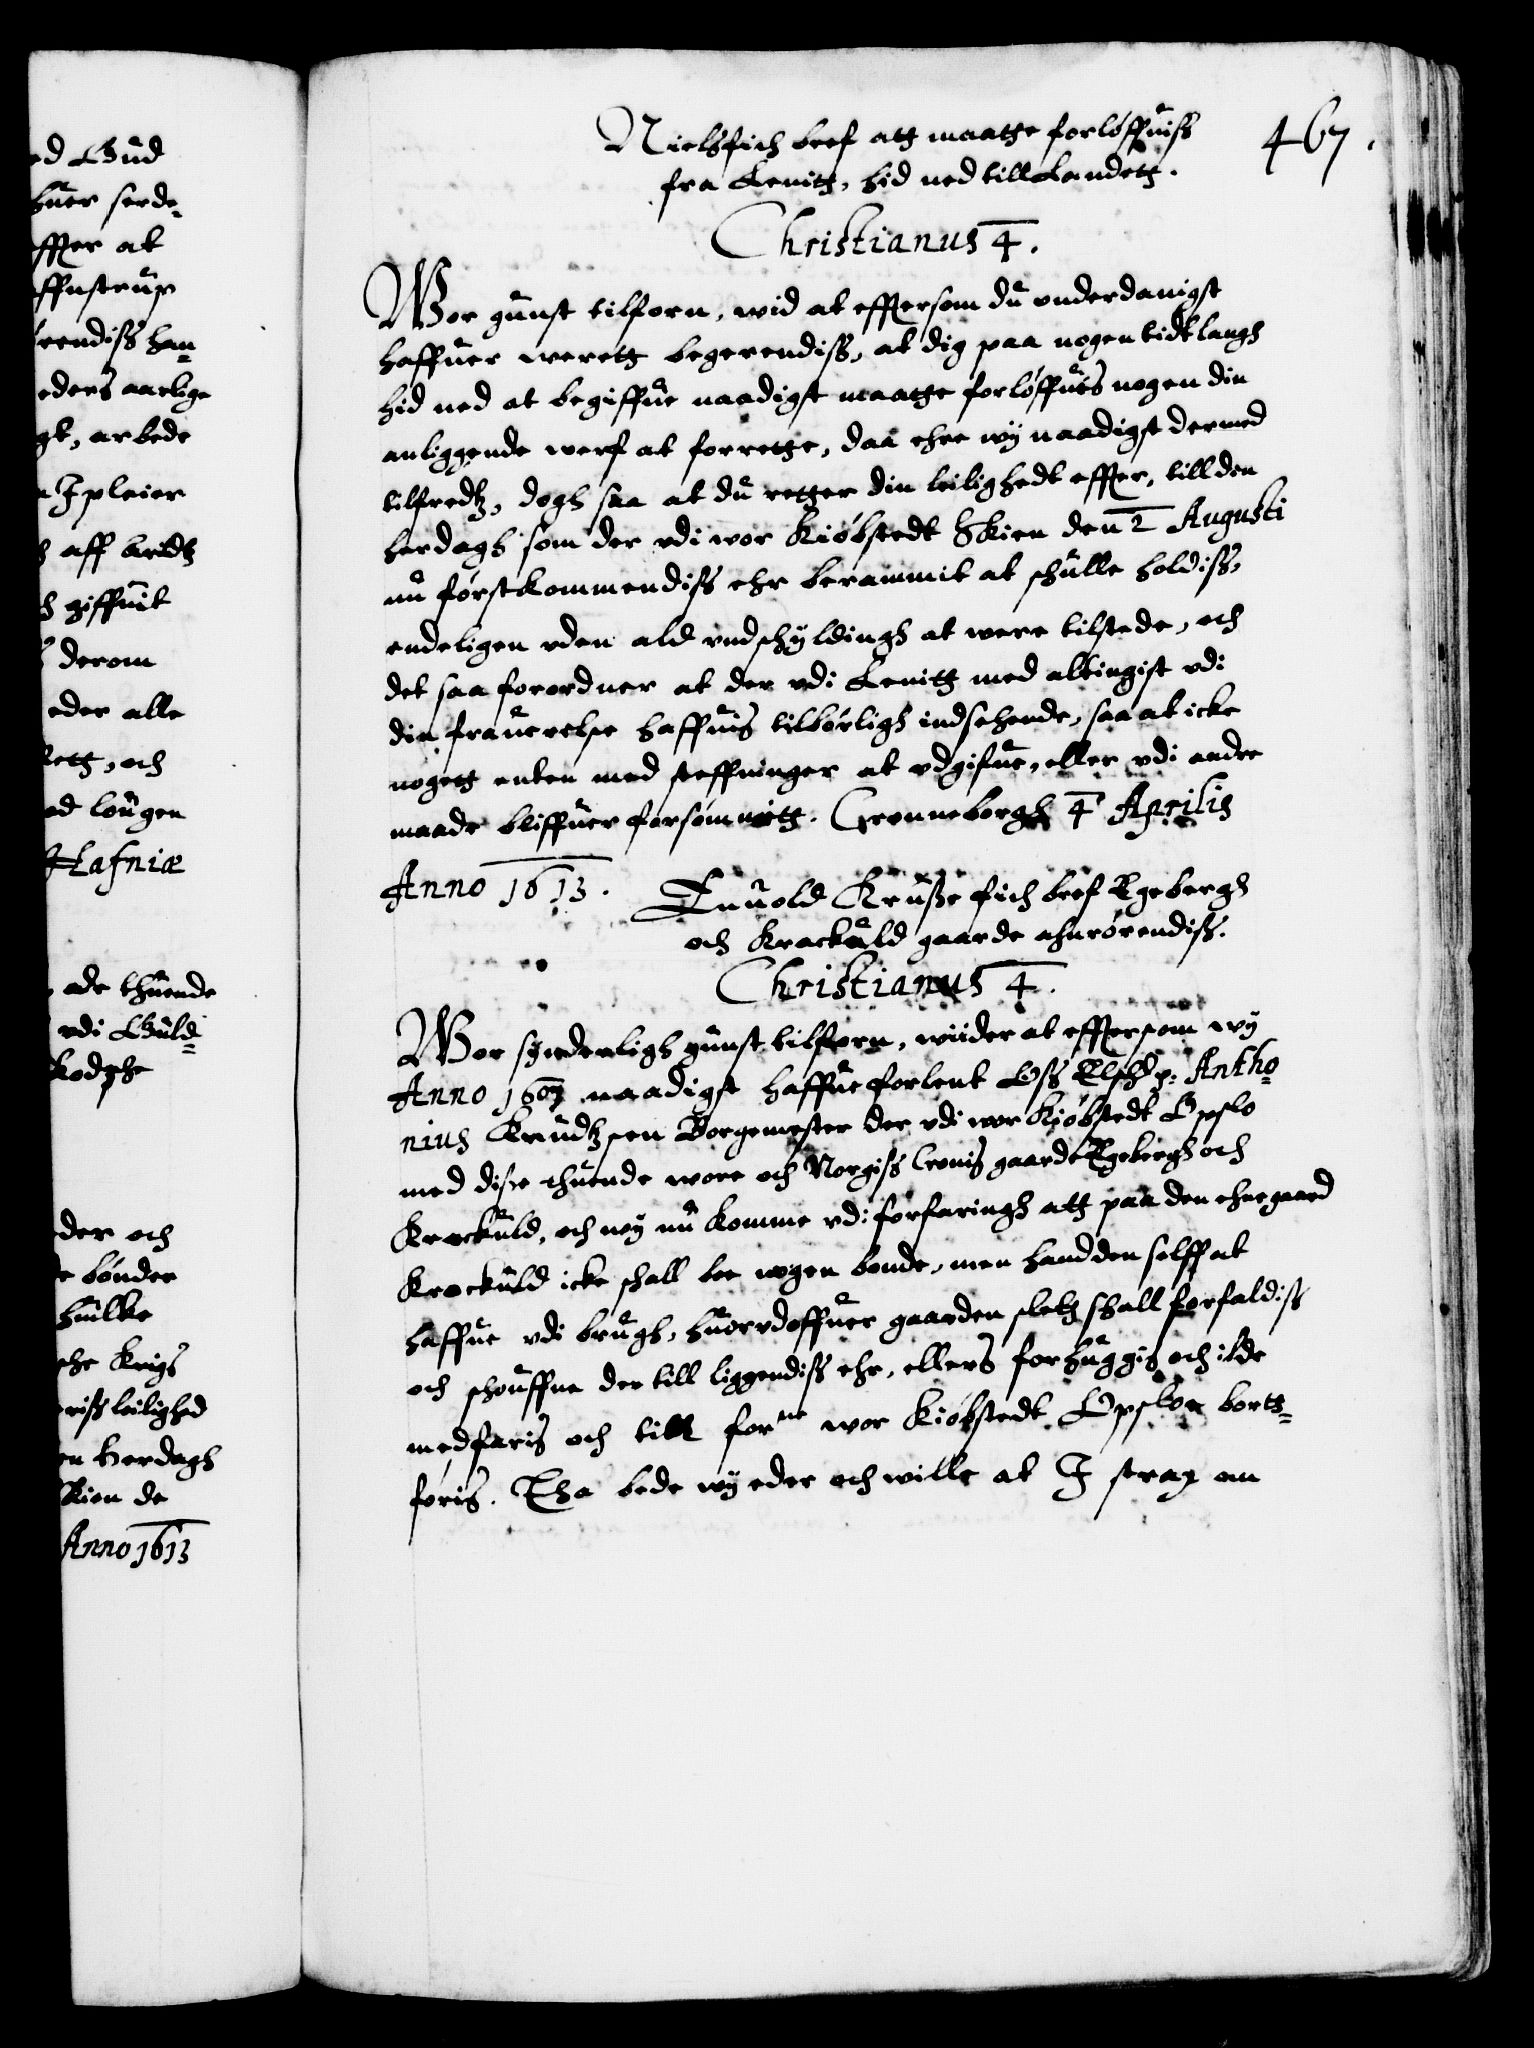 ed Gud
huer serde¬
effter at
ffnstrup
rendiss han¬
eders aarlige
gt, arbede
n I pleier
aff bridtz
giffuit
derom
eder alle
rettz, och
ad lougen
Hafniæ
ade thuende
vdi Guld¬
der och
e bønder
huilke
sche krigs
eriss leilighed
en herdagh
Skien de
Anno 1613
467.
Niels fich bref att maatte forløffuiss
fra Lenitt, hid ned till Landett.
Christianus 4.
Wor gunst tilforn, wid at effttersom du vnderdanigst
haffuer werett begerendiss, at dig paa nogen tidt langh
hid ned at begiffue naadigst maatte forløffues nogen din
anliggende werf at forrette, daa ehre wy naadigst dermed
tilfredtz, dogh saa at du retter din leilighedt effter, till den
herdagh som der vdi wor Kiøbstedt Skien den 2 Augusti
nu førstkommendiss ehr berammit at schulle holdiss,
endeligen vden ald vndschyldingh at were tilstede, och
det saa forordner at der vdi Lenitt med altingist vdi
din frauerelse haffuis tilbørligh indsehende, saa at icke
nogett enten med steffninger at vdgifue, eller vdi andre
maade bliffuer forsømmitt. Cronneborgh 4 Aprilis
Anno 1613.
Enuold Kruse fich bref Egebergh
och Krackuld gaarde ahnrørendiss.
Christianus 4.
Wor synderligh gunst tilforn, wiider at efftersom wy
Anno 1607 naadigst haffue forlent Oss Elsch: Antho¬
nius Knudtzsen Borgemester der vdi wor Kiøbstedt Opslo
med disse thuende wore och Norgiss Cronis gaarde Egebergh och
Krackuld, och wy nu komme vdi forfaringh att paa den ehne gaard
Krackuld icke schall boe nogen bonde, men hand den selff at
haffue vdi brugh, huorvdoffuer gaarden sletz schall forfaldiss
och schouffue der till liggendiss ehr, ellers forhuggis och ilde
medfaris och till forne wor Kiøbstedt Opsloe bortt¬
føris. Tha bede wy eder och wille at I strax an